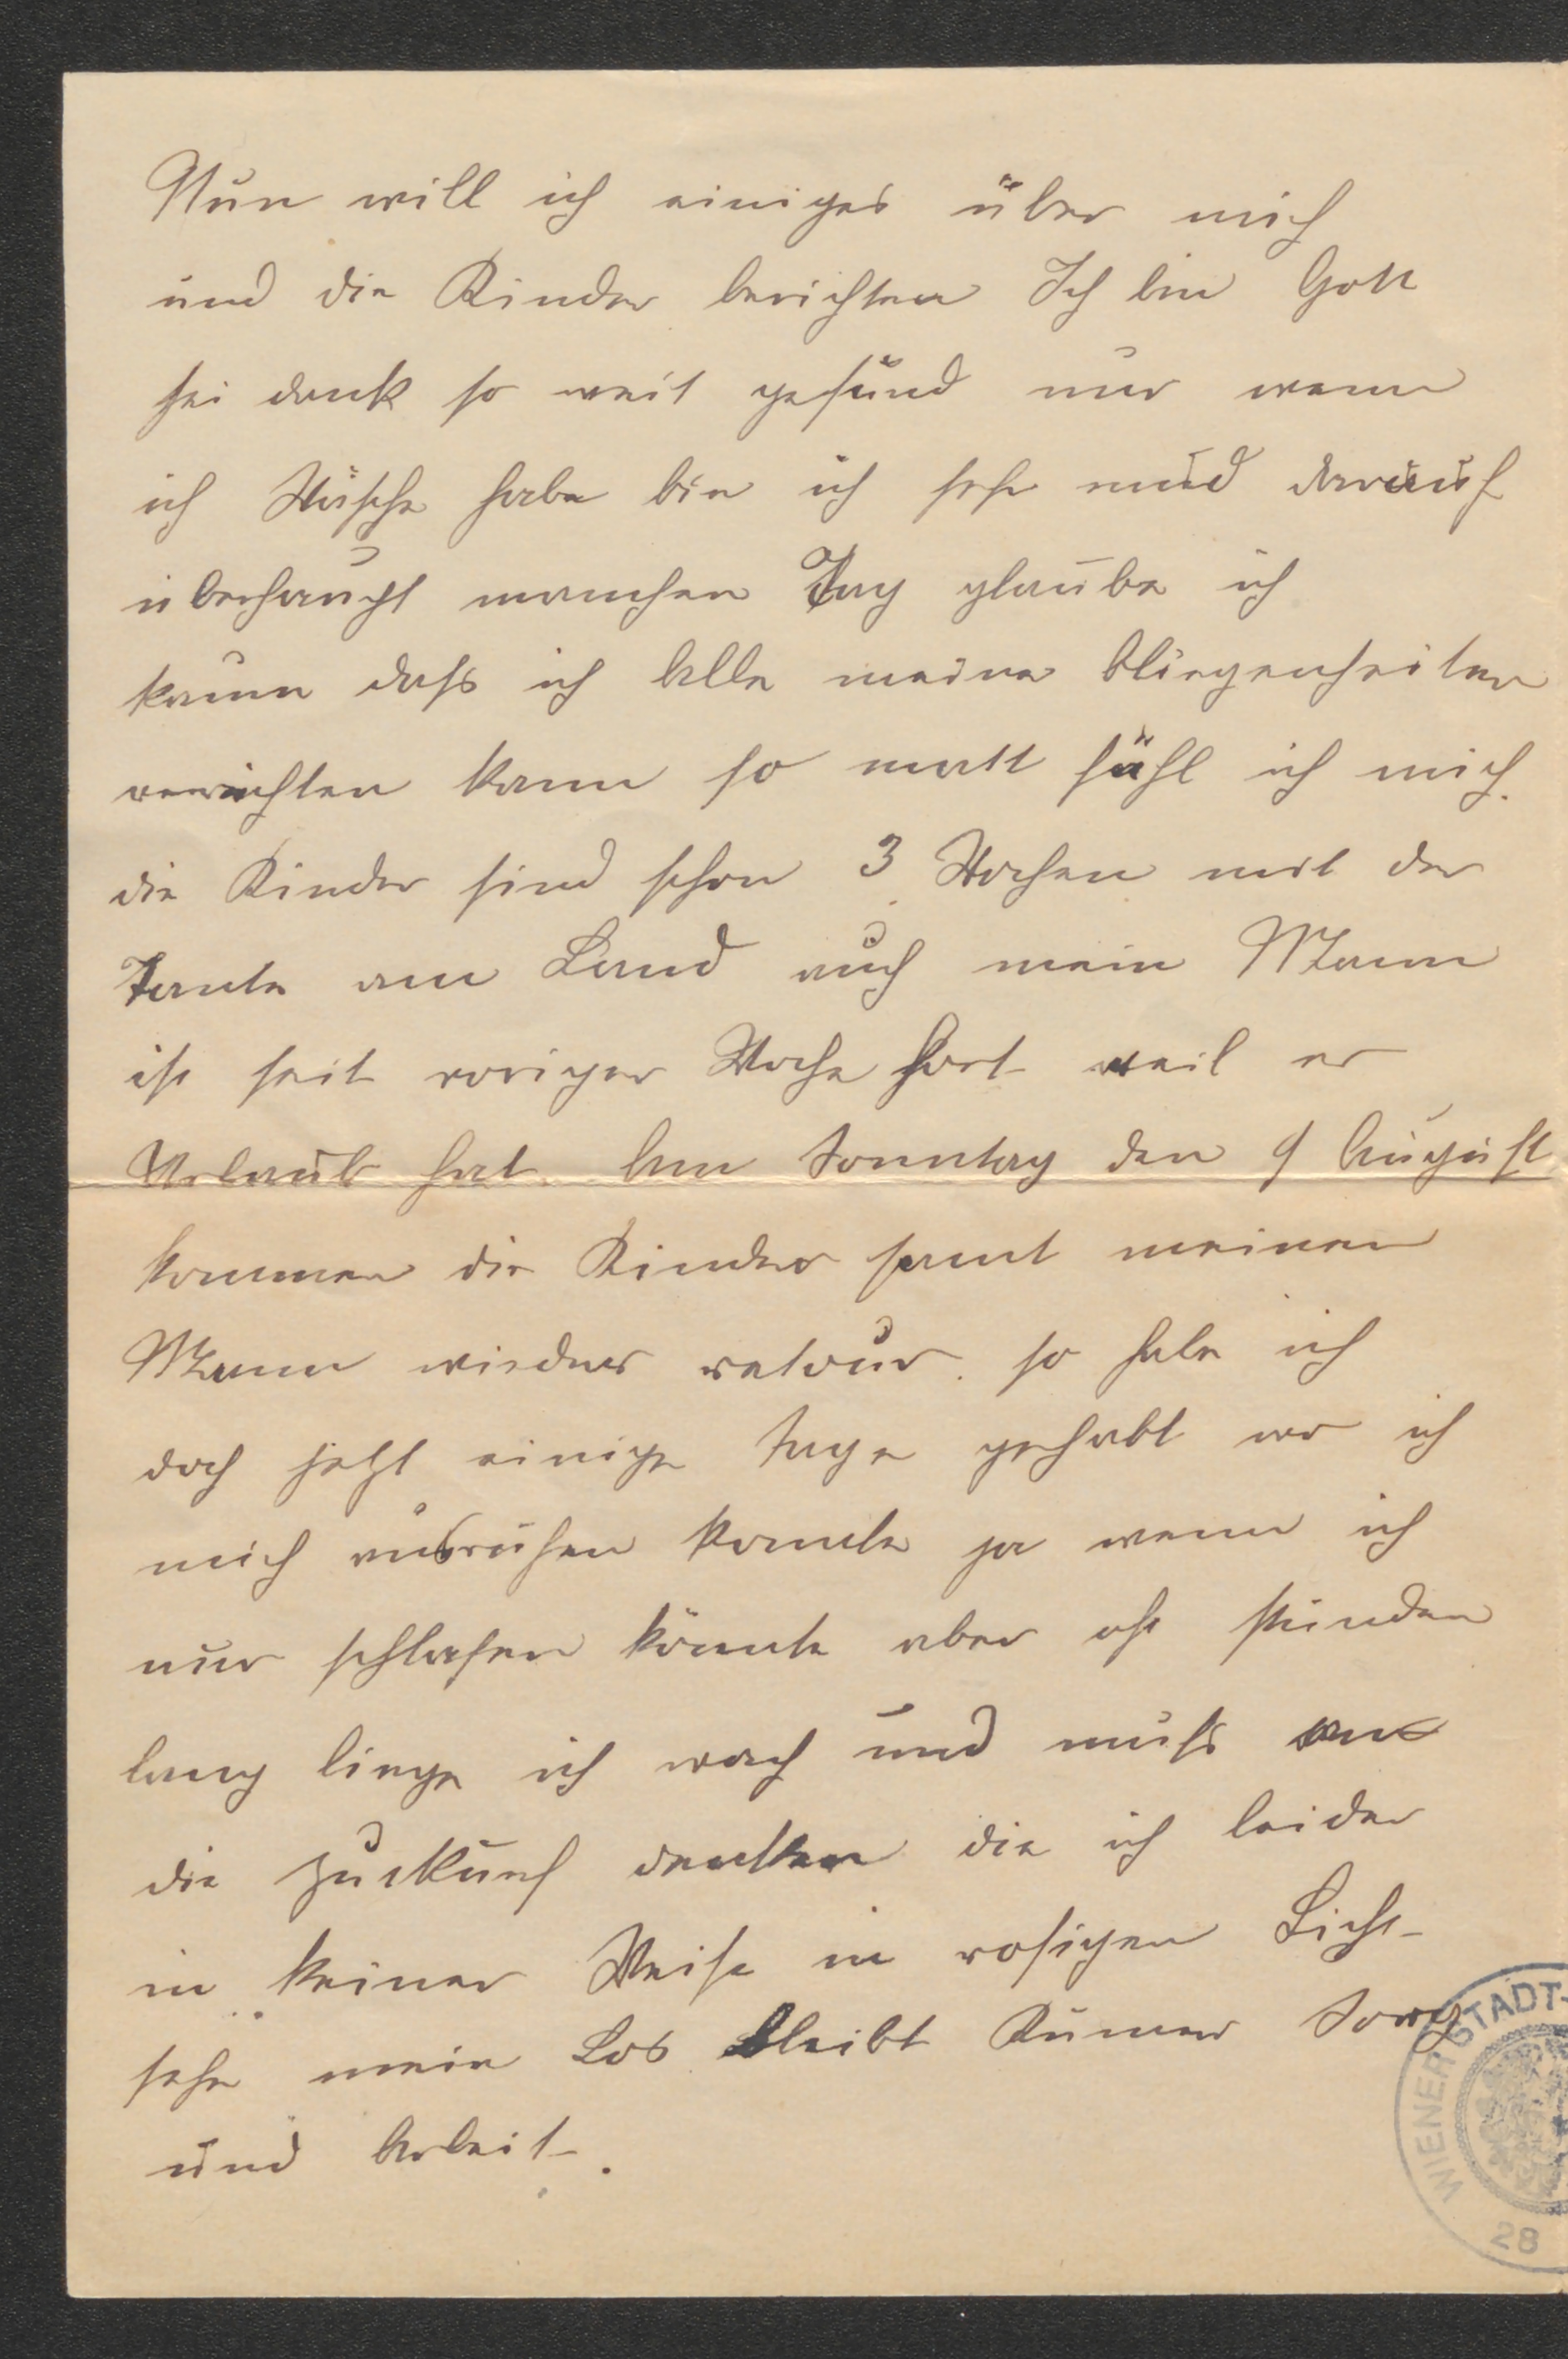 Nun will ich einiges über mich
und die Kinder berichten Ich bin Gott
sei dank so weit gesund nur wenn
ich Wäsche habe bin ich sehr müd darauf
überhaupt manchen Tag glaube ich
kaum dass ich Alle meine Obliegenheiten
verrichten kann so matt fühl ich mich.
die Kinder sind schon 3 Wochen mit der
Tante am Land auch mein Mann
ist seit voriger Woche fort weil er
Urlaub hat. Am Sonntag den 9 August
kommen die Kinder samt meinen
Mann wieder retour. so habe ich
doch jetzt einige Tage gehabt wo ich
mich ausruhen konnte ja wenn ich
nur schlafen könnte aber oft stunden
lang liege ich wach und muss an
die zukunf denken die ich leider
in keiner Weise in rosigen Licht
sehe mein Los bleibt Kumer Sorg
und Arbeit.
WIENER STADT-
28